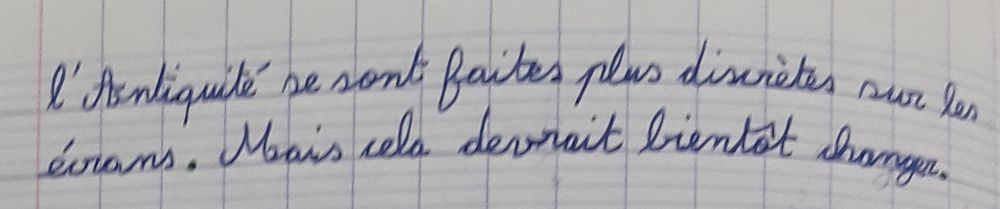 l'Antiquité se sont faites plus discrètes sur les
écrans. Mais cela devrait bientôt changer.